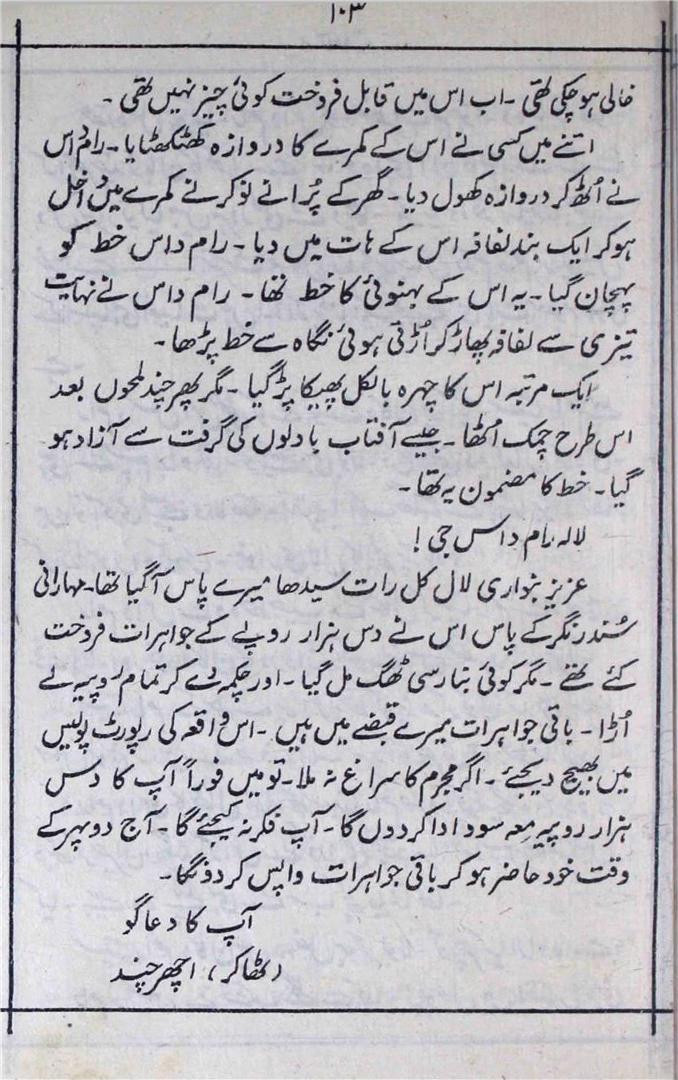 ۱۰۳
خالی ہو چکی تھی ۔ اب اس میں قابل فروخت کوئی چیز نہیں تھی ۔
اتنے میں کسی نے اس کے کمرے کا دروازہ کھٹکھٹایا ۔ رام داس
نے اُٹھ کر دروازہ کھول دیا ۔ گھر کے پُرانے نوکر نے کمرے میں داخل
ہو کر ایک بند لفافہ اس کے ہات میں دیا ۔ رام داس خط کو
پہچان گیا ۔ یہ اس کے بہنوئی کا خط تھا ۔ رام داس نے نہایت
تیزی سے لفافہ پھاڑ کر اُڑتی ہوئی نگاہ سے خط پڑھا ۔
ایک مرتبہ اس کا چہرہ بالکل پھیکا پڑ گیا ۔ مگر پھر چند لمحوں بعد
اس طرح چمک اُٹھا ۔ جیسے آفتاب بادلوں کی گرفت سے آزاد ہو
گیا ۔ خط کا مضمون یہ تھا ۔
لالہ رام داس جی !
عزیز بنواری لال کل رات سیدھا میرے پاس آ گیا تھا ۔ مہارانی
سُندر نگر کے پاس اس نے دس ہزار روپے کے جواہرات فروخت
کئے تھے ۔ مگر کوئی بنارسی ٹھگ مل گیا ۔ اور چکمہ دے کر تمام روپیہ لے
اُڑا ۔ باقی جواہرات میرے قبضے میں ہیں ۔ اس واقعہ کی رپورٹ پولیس
میں بھیج دیجئے ۔ اگر مجرم کا سراغ نہ ملا ۔ تو میں فوراً آپ کا دس
ہزار روپیہ مِعہ سود ادا کر دوں گا ۔ آپ فکر نہ کیجئے گا ۔ آج دوپہر کے
وقت خود حاضر ہو کر باقی جواہرات واپس کر دونگا ۔
آپ کا دعا گو
(ٹھاکر) اچھر چند